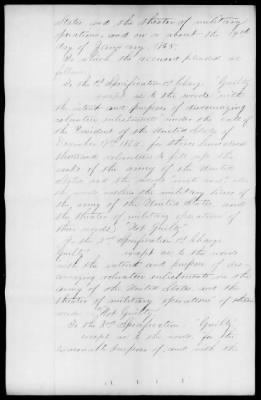 States, and the theater of military
operations, and on or about the 19th
day of January, 1865.
To which the accused pleaded as
follows:
To the 1st Specification 1st Charge "Guilty"
except as to the words "with
the intent and purpose of discouraging
volunteer enlistments under the call of
the President of the United States of
December 19th 1864, for three hundred
thousand volunteers to fill up the
ranks of the army of the United
States and the
the words within the military lines of
the army of the United States, and
the theater of military operations of
these words, "Not Guilty"
To the 2nd Specification 1st Charge
Guilty except as to the words
with the intent and purpose of dis-
couraging volunteer enlistments in the
army of the United States and the
theater of military operations of these
words "Not Guilty"
To the 3rd Specification, "Guilty"
except as to the words, for the
treasonable purpose of, and with the